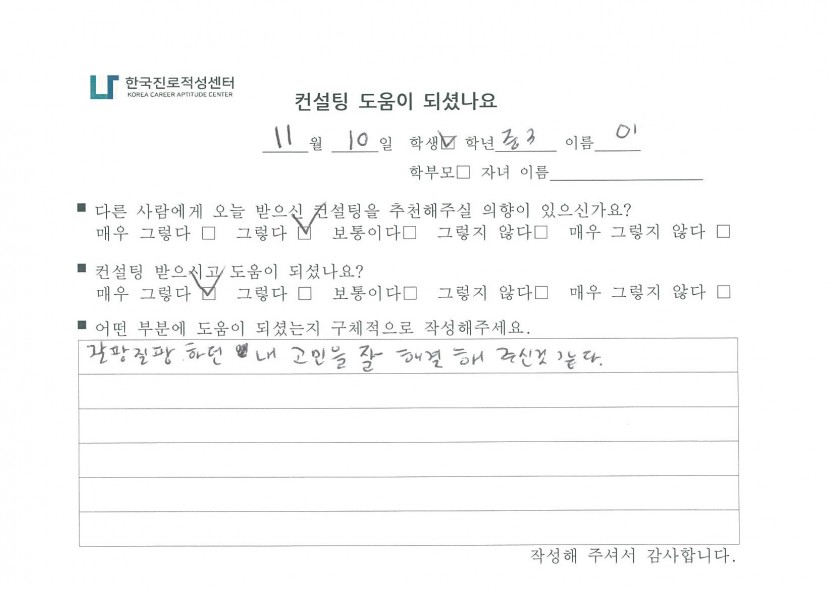 한국진로적성센터
KOREA CAREER APTITUDE CENTER
컨설팅 도움이 되셨나요
11월 10일 학생☑ 학년 중3 이름 이
학부모□ 자녀 이름
■ 다른 사람에게 오늘 받으신 컨설팅을 추천해주실 의향이 있으신가요?
매우 그렇다 □ 그렇다 ☑ 보통이다□ 그렇지 않다□ 매우 그렇지 않다 □
■ 컨설팅 받으시고 도움이 되셨나요?
매우 그렇다 ☑ 그렇다 □ 보통이다□ 그렇지 않다□ 매우 그렇지 않다 □
■ 어떤 부분에 도움이 되셨는지 구체적으로 작성해주세요.
갈팡질팡 하던 내 고민을 잘 해결 해 주신것 같다.
작성해 주셔서 감사합니다.